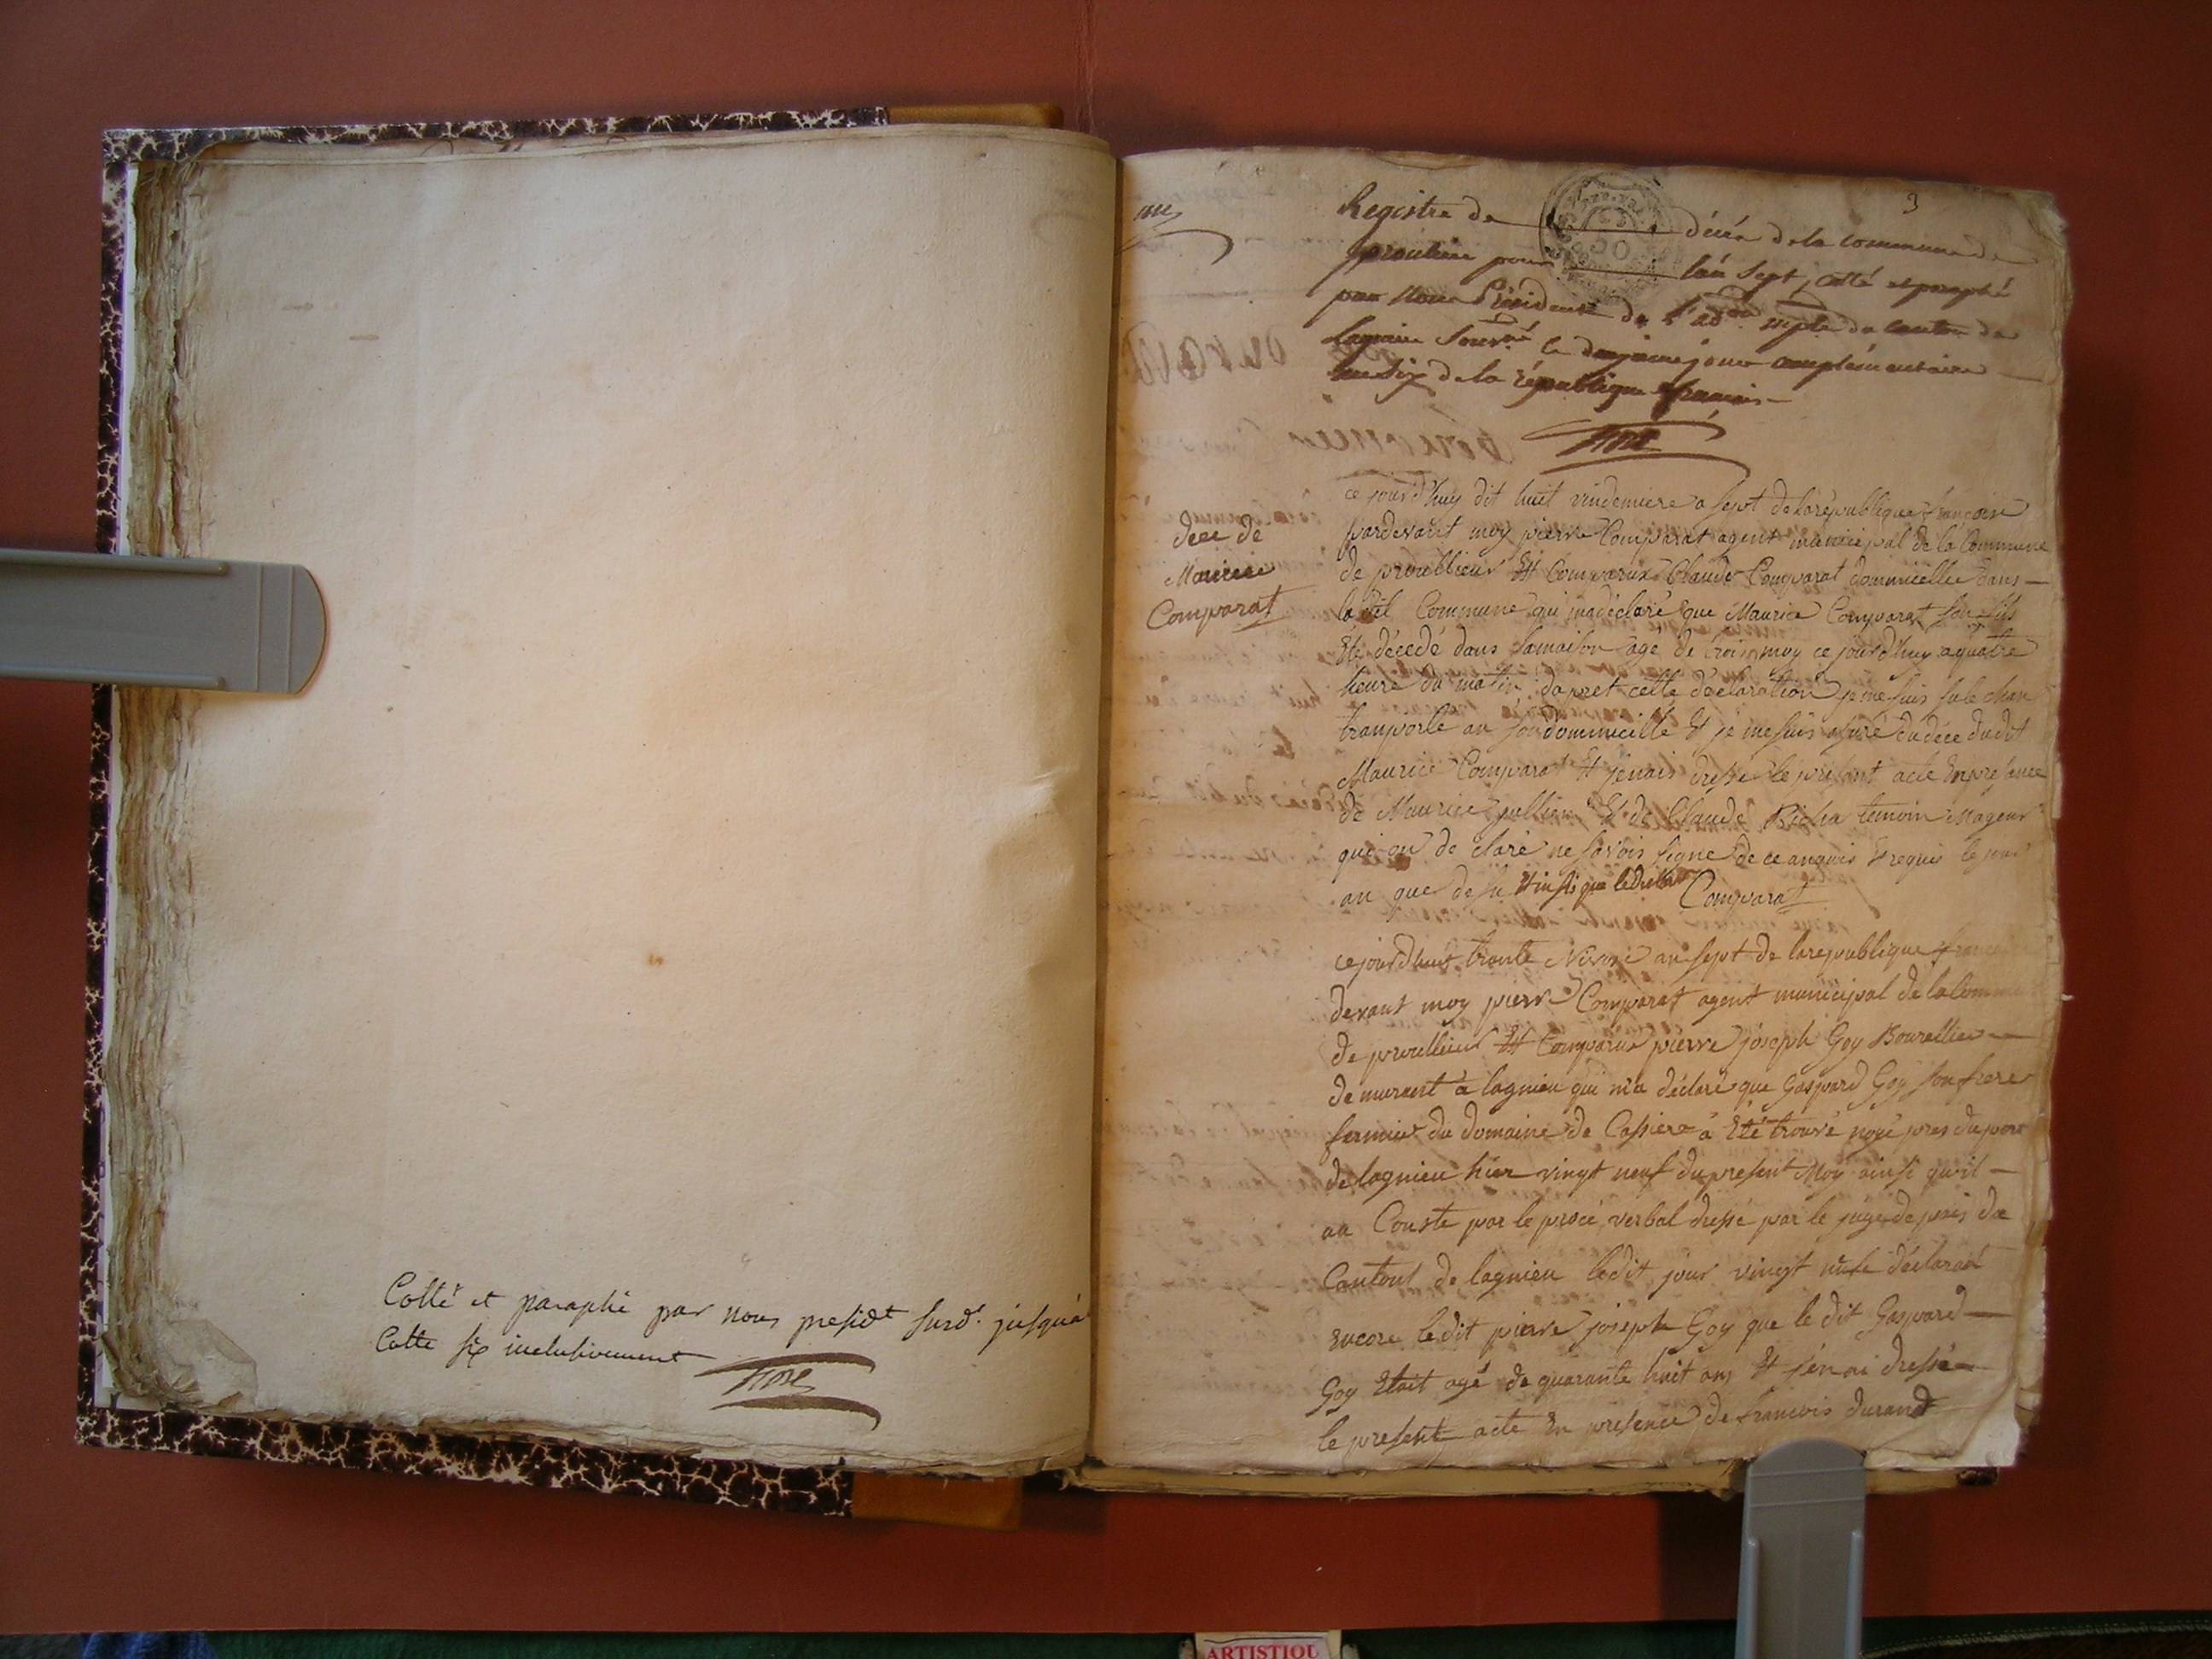 Cotté et paraphé par nous presidt susd. jusqu'a
Cotte six inclusivement
3
Registre de décès de la commune de
proulieu pour l'an sept, cotté et paraphé
par Nous Président de l'adon mple du canton de
Lagnieu Sousné le deuxieme jour complémentaire
an six de la république française
dece de
Maurice
Comparat
ce jourd'huy dit huit vindemiere a sept de la republique francoise
pardevant moy pierre Comparat agent municipal de la Commune
de proullieux Et Comparux Claude Comparat dommicellie dans
la dit Commune qui ma déclaré que Maurice Comparat son fils
Eté décedé dans sa maison agé de trois moy ce jourd'huy a quatre
heure du matin dapret cette déclaration je me suis sule chan
transporté au son dommicille Et je me suis asuré du déce du dit
Maurice Comparat Et j'enais dressé le present acte En presence
de Maurice jullien Et de Claude Bicha temoin Mageur
qui on de claré ne savoir signe de ce anquis Et requis le jour
an que desu Comparat
ce jourd'hui trante Nivose an sept de la republique
devant moy pierre Comparat agent municipal de la
de proullieux Et Comparux pierre joseph Goy Bourellier
demurant a lagnieu qui m'a déclaré que Gaspard Goy son frere
fermier du domaine de Cassiere a Eté trouvé noyé pres du port
de lagnieu hier vingt neuf du present Moy ainsi qu'il
an Conste par le procé verbal dressé par le juge de pais du
Cantont de lagnieu ledit jour vingt neuf déclarant
Encore ledit pierre joseph Goy que le dit Gaspard
Goy Etait agé de quarante huit ans Et j'en ai dressé
le present acte En presence de francois durand
ARTISTIQU